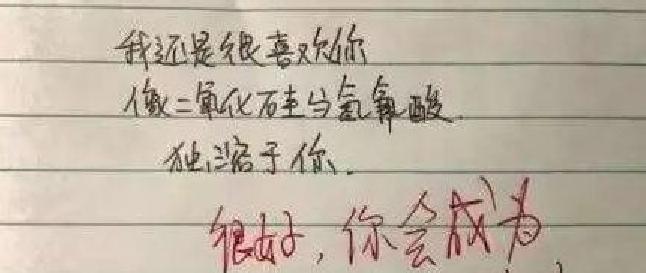 我还是很喜欢你
像二氧化硅与氢氟酸.
独溶于你.
很好,你会成为